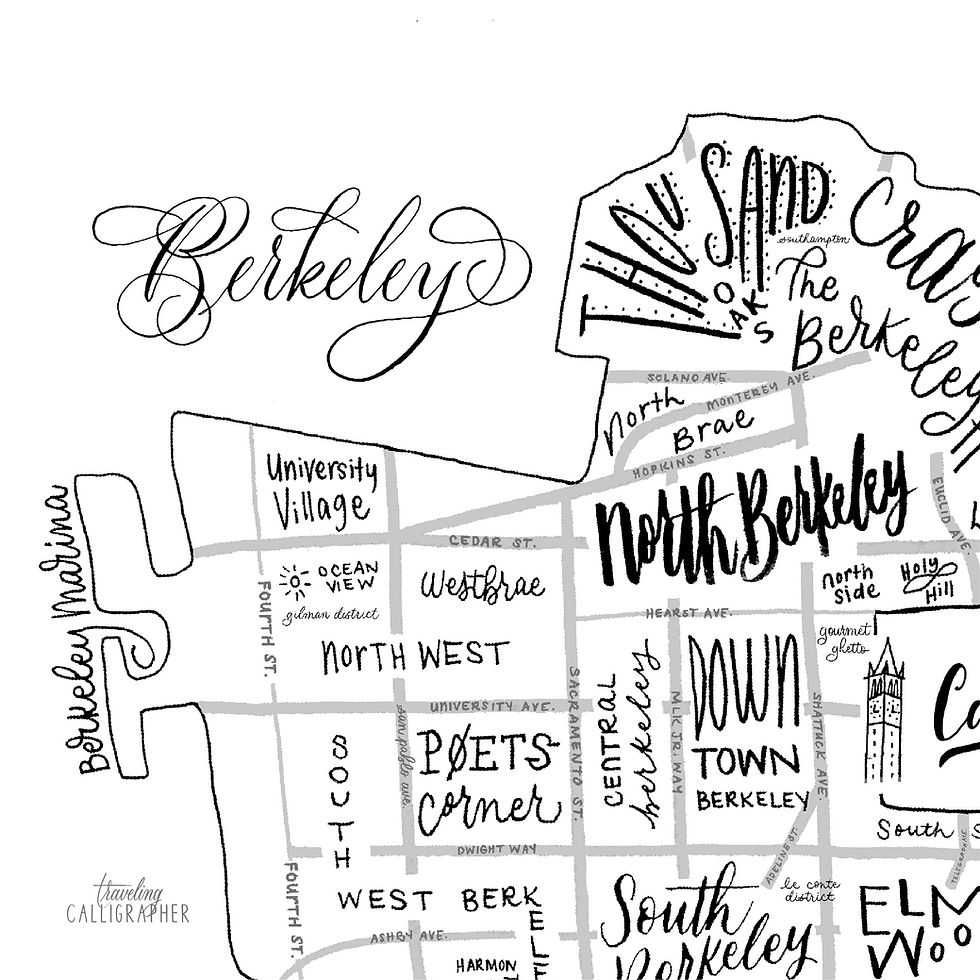 Berkeley
THOUSAND
OAKS
southampton
The
Berkeley
SOLANO AVE.
MONTEREY AVE.
North
Brae
HOPKINS ST.
University
Village
North Berkeley
EUCLID AVE.
CEDAR ST.
Berkeley Marina
OCEAN
VIEW
gilman district
Westbrae
north
side
Holy
Hill
FOURTH ST.
HEARST AVE.
gourmet
ghetto
NORTH WEST
CENTRAL
berkeley
DOWN
TOWN
BERKELEY
SACRAMENTO ST.
MLK JR. WAY
SHATTUCK AVE.
UNIVERSITY AVE.
san pablo ave.
POETS
corner
SOUTH
WEST BERKELE
South
ADELINE ST.
DWIGHT WAY
le conte
district
FOURTH ST.
traveling
CALLIGRAPHER
ASHBY AVE.
South
Berkeley
ELM
WOO
HARMON